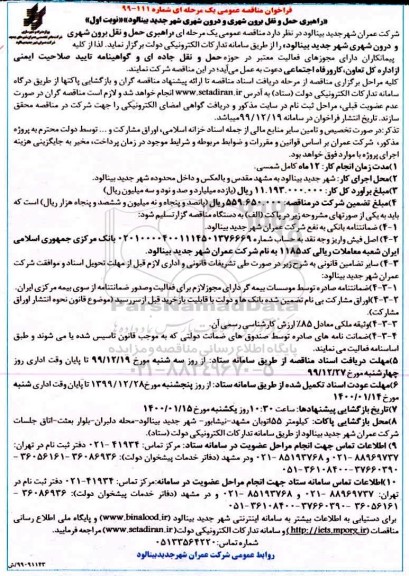 فراخوان مناقصه عمومی یک مرحله ای شماره ۱۱۱-۹۹
«راهبری حمل و نقل برون شهری و درون شهری شهر جدید بینالود»«نوبت اول»
شرکت عمران شهر جدید بینالود در نظر دارد مناقصه عمومی یک مرحله ای راهبری حمل و نقل برون شهری
و درون شهری شهر جدید بینالود، را از طریق سامانه تدارکات الکترونیکی دولت برگزار نماید. لذا از کلیه
پیمانکاران دارای مجوزهای فعالیت معتبر در حوزه حمل و نقل جاده ای و گواهینامه تایید صلاحیت ایمنی
از اداره کل تعاون، کار و رفاه اجتماعی دعوت به عمل می‌آید؛ در این مناقصه شرکت نمایند.
کلیه مراحل برگزاری مناقصه از مرحله دریافت اسناد مناقصه تا ارائه پیشنهاد مناقصه گران و بازگشایی پاکتها از طریق درگاه
سامانه تدارکات الکترونیکی دولت (ستاد) به آدرس www.setadiran.ir انجام خواهد شد و لازم است مناقصه گران در صورت
عدم عضویت قبلی، مراحل ثبت نام در سایت مذکور و دریافت گواهی امضای الکترونیکی را جهت شرکت در مناقصه محقق
سازند. تاریخ انتشار فراخوان در سامانه ۹۹/۱۲/۱۹ میباشد.
تذکر: در صورت تخصیص و تامین سایر منابع مالی از جمله اسناد خزانه اسلامی، اوراق مشارکت و ... توسط دولت محترم به پروژه
مذکور، شرکت عمران بر اساس قوانین و مقررات و ضوابط مربوطه و شرایط موجود در زمان پرداخت، مخیر به جایگزینی هزینه
اجرای پروژه با موارد فوق خواهد بود.
۱)مدت زمان انجام کار: ۱۲ ماه کامل شمسی.
۲)محل اجرای کار: شهر جدید بینالود به مشهد مقدس و بالعکس و داخل محدوده شهر جدید بینالود.
۳)مبلغ برآورد کل کار: ۱۱.۱۹۳.۰۰۰.۰۰۰ ریال (یازده میلیارد و صد و نود و سه میلیون ریال)
۴)مبلغ تضمین شرکت در مناقصه: ۵۵۹.۶۵۰.۰۰۰ ریال (پانصد و پنجاه و نه میلیون و ششصد و پنجاه هزار ریال) است که
باید به یکی از صورتهای مشروحه زیر در پاکت (الف) به دستگاه مناقصه گزار تسلیم شود:
۴-۱) ضمانتنامه بانکی به نفع شرکت عمران شهر جدید بینالود.
۴-۲) اصل فیش واریز وجه نقد به حساب شماره بانک مرکزی جمهوری اسلامی
ایران شعبه معاملات ریالی کد ۱۱۸۵ به نام شرکت عمران شهر جدید بینالود.
۴-۳) سایر تضامین قانونی به شرح زیر در صورت طی تشریفات قانونی و اداری لازم قبل از مهلت تحویل اسناد و موافقت شرکت
عمران شهر جدید بینالود:
۴-۳-۱)ضمانتنامه صادره توسط موسسات بیمه گر دارای مجوز لازم برای فعالیت و صدور ضمانتنامه از سوی بیمه مرکزی ایران.
۴-۳-۲)اوراق مشارکت بی نام تضمین شده بانک ها و دولت با قابلیت بازخرید قبل از سررسید (موضوع قانون نحوه انتشار اوراق
مشارکت).
۴-۳-۳)وثیقه ملکی معادل ۸۵٪ ارزش کارشناسی رسمی آن.
۴-۳-۴)ضمانت نامه های صادره توسط صندوق های ضمانت دولتی که به موجب قانون تاسیس شده یا می شوند و طبق
اساسنامه فعالیت می نمایند.
۵)مهلت دریافت اسناد مناقصه از طریق سامانه ستاد: از روز سه شنبه مورخ ۹۹/۱۲/۱۹ تا پایان وقت اداری روز
چهارشنبه مورخ ۹۹/۱۲/۲۷
۶)مهلت عودت اسناد تکمیل شده از طریق سامانه ستاد: از روز پنجشنبه مورخ ۱۳۹۹/۱۲/۲۸ تا پایان وقت اداری شنبه
مورخ ۱۴۰۰/۰۱/۱۴
۷)تاریخ بازگشایی پیشنهادها: ساعت ۱۰:۳۰ روز یکشنبه مورخ ۱۴۰۰/۰۱/۱۵
۸)محل بازگشایی پاکات: کیلومتر ۵۵ اتوبان مشهد-نیشابور- شهر جدید بینالود-محله دلبران-بلوار بعثت-اتاق جلسات
شرکت عمران شهر جدید بینالود از طریق سامانه تدارکات الکترونیکی دولت (ستاد).
۹) اطلاعات تماس جهت انجام مراحل عضویت در سامانه ستاد: مرکز تماس: ۴۱۹۳۴-۰۲۱ دفتر ثبت نام در تهران:
۸۸۹۶۹۷۳۷-۰۲۱ و ۸۵۱۹۳۷۶۸-۰۲۱ و در مشهد (دفاتر خدمات پیشخوان دولت):
۱۰)اطلاعات تماس سامانه ستاد جهت انجام مراحل عضویت در سامانه:مرکز تماس: ۴۱۹۳۴-۰۲۱ دفتر ثبت نام در
تهران: ۸۸۹۶۹۷۳۷-۰۲۱ و ۸۵۱۹۳۷۶۸-۰۲۱ و در مشهد (دفاتر خدمات پیشخوان دولت):
برای دستیابی به اطلاعات بیشتر به سامانه اینترنتی شهر جدید بینالود (www.binalood.ir) و پایگاه ملی اطلاع رسانی
مناقصات (http://iets.mporg.ir) و سامانه تدارکات الکترونیکی دولت (www.setadiran.ir) مراجعه فرمایید.
شماره تماس: ۰۵۱۳۳۵۶۴۲۲۰
روابط عمومی شرکت عمران شهر جدید بینالود
ParsNamadData